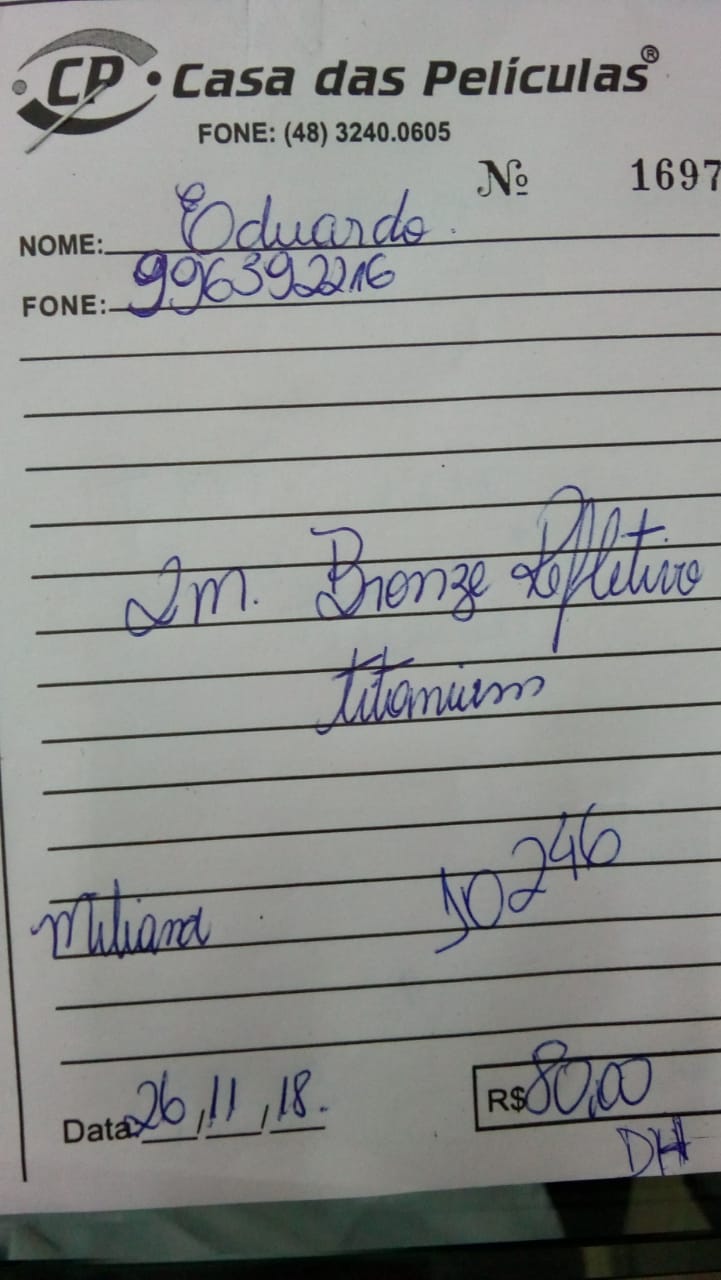 CP • Casa das Películas®
FONE: (48) 3240.0605
Nº 1697
NOME: Eduardo.
FONE: 996392216
2m. Bronze Refletivo
titanium
10246
Miliana
Data: 26, 11, 18.
R$ 80,00
DH